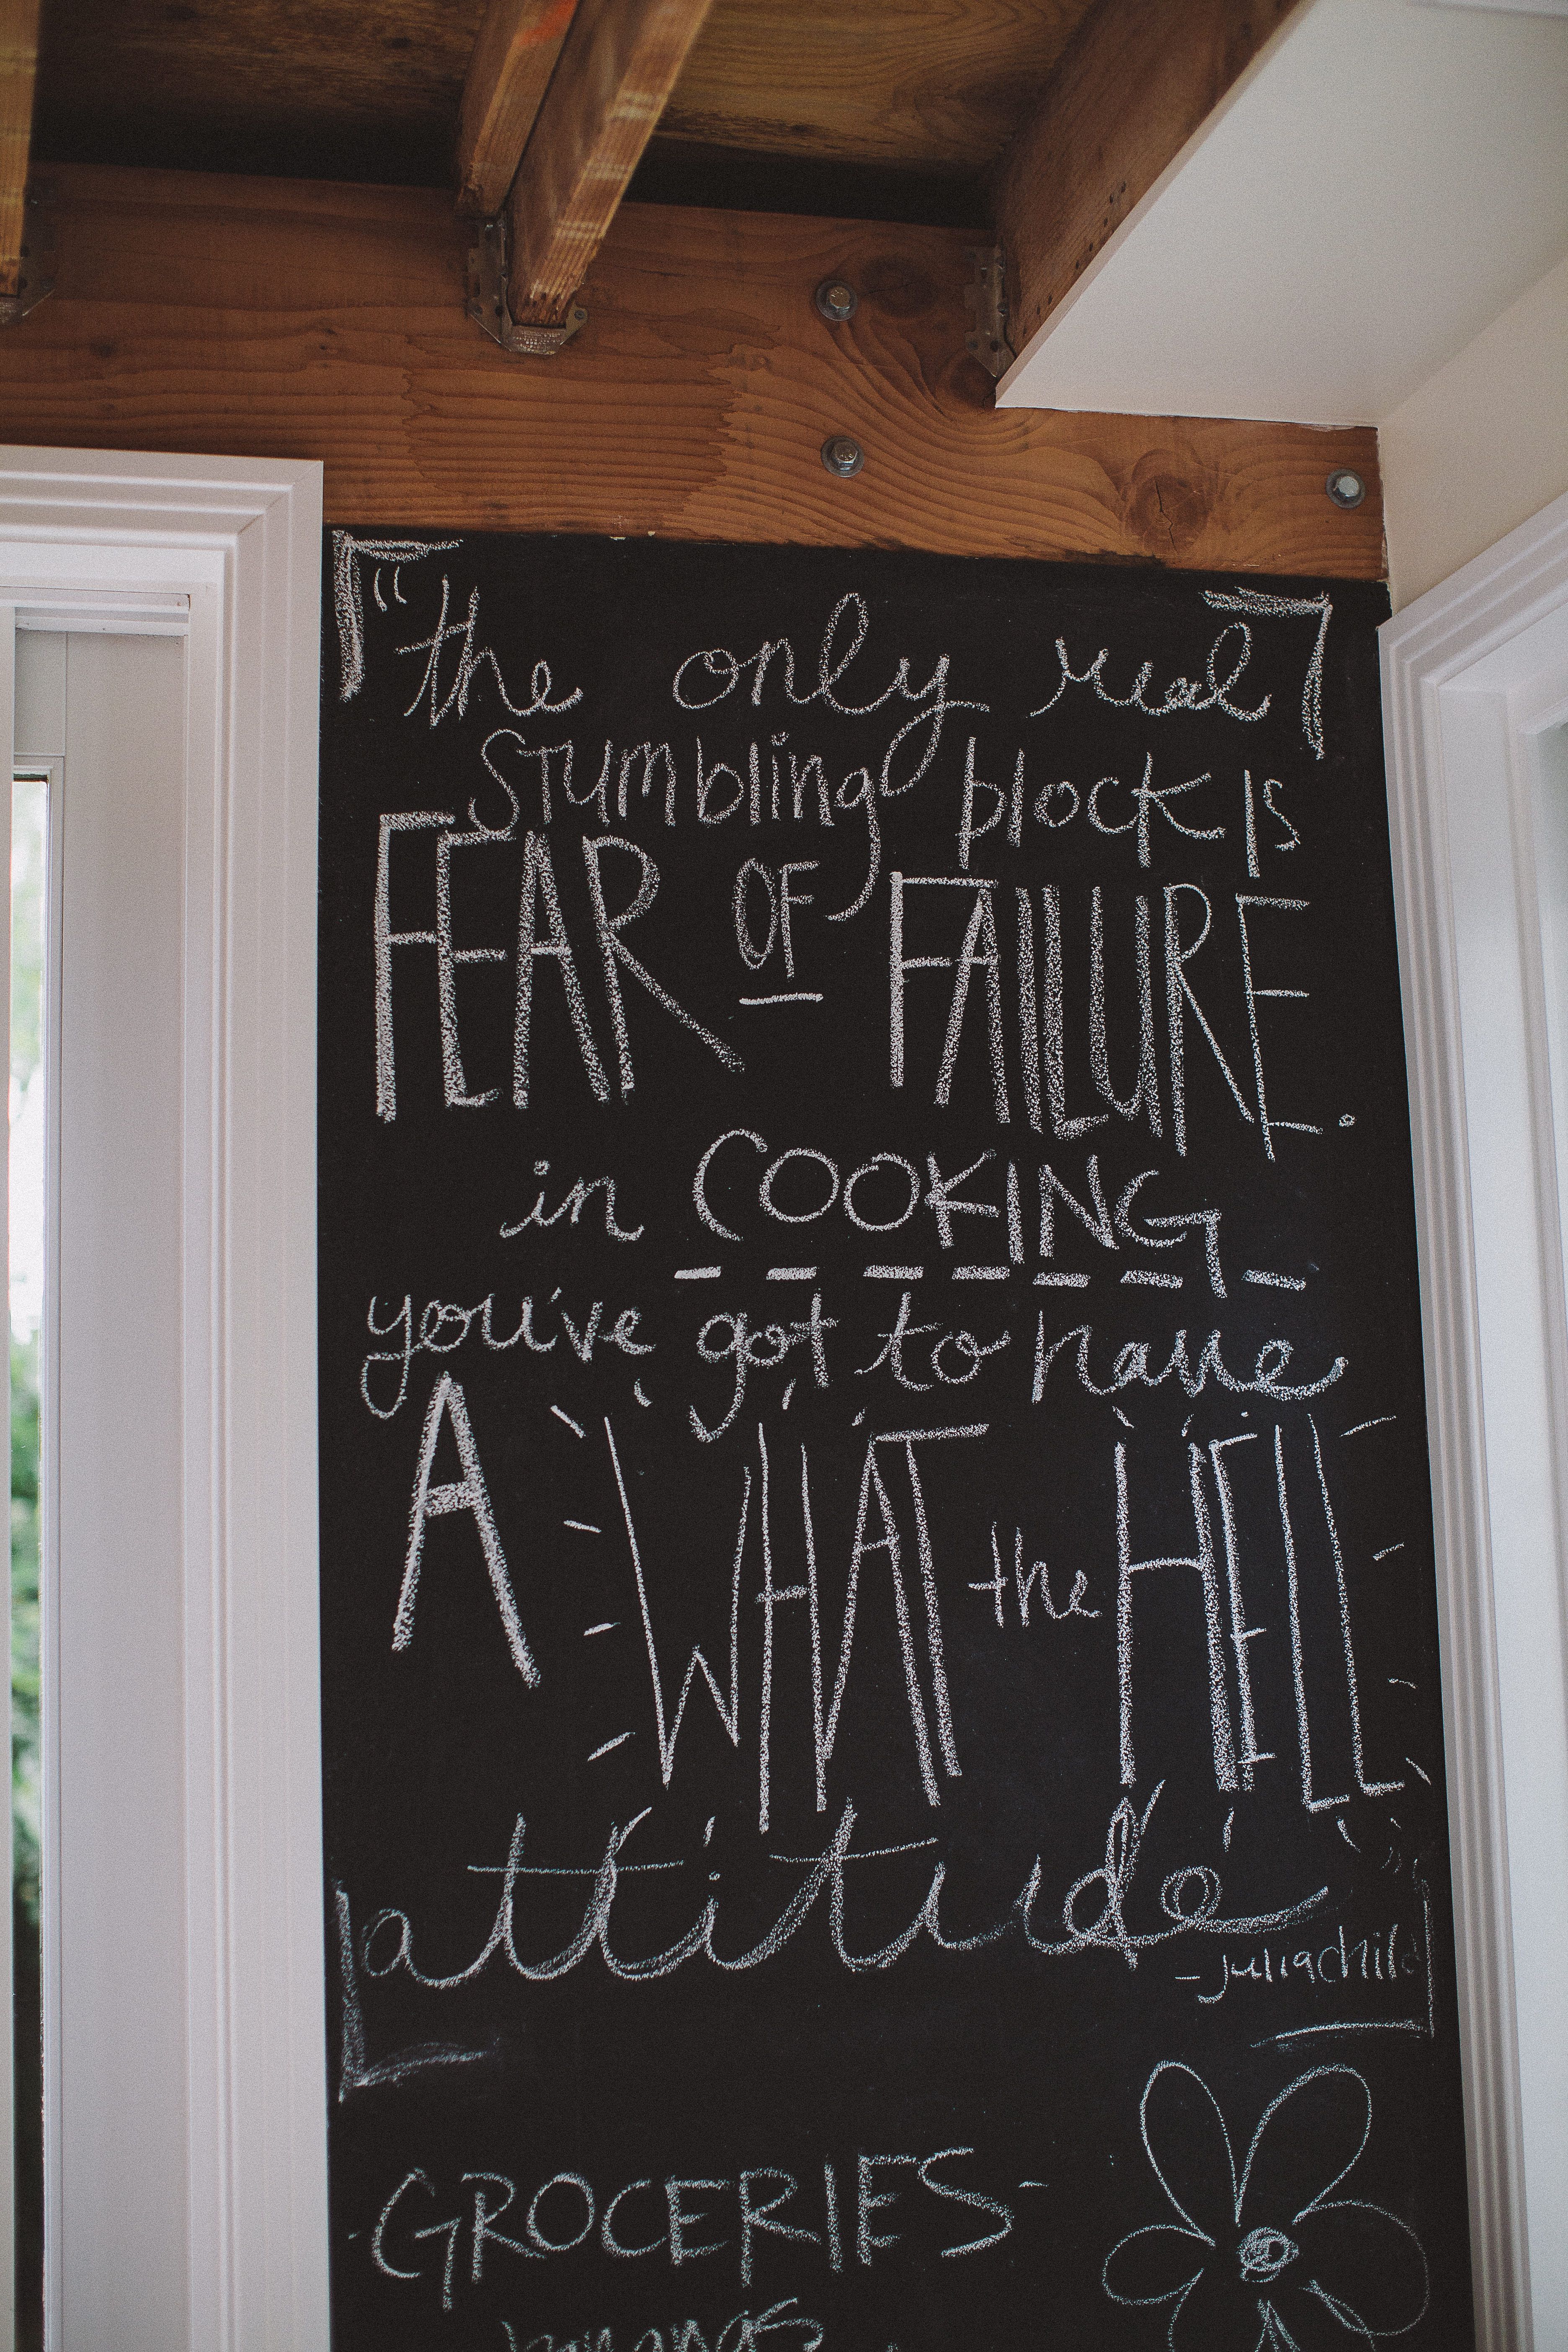 "the only real
stumbling block is
FEAR OF FAILURE.
in COOKING
you've got to have
A WHAT the HELL
attitude"
-julia child
-GROCERIES-
bananas